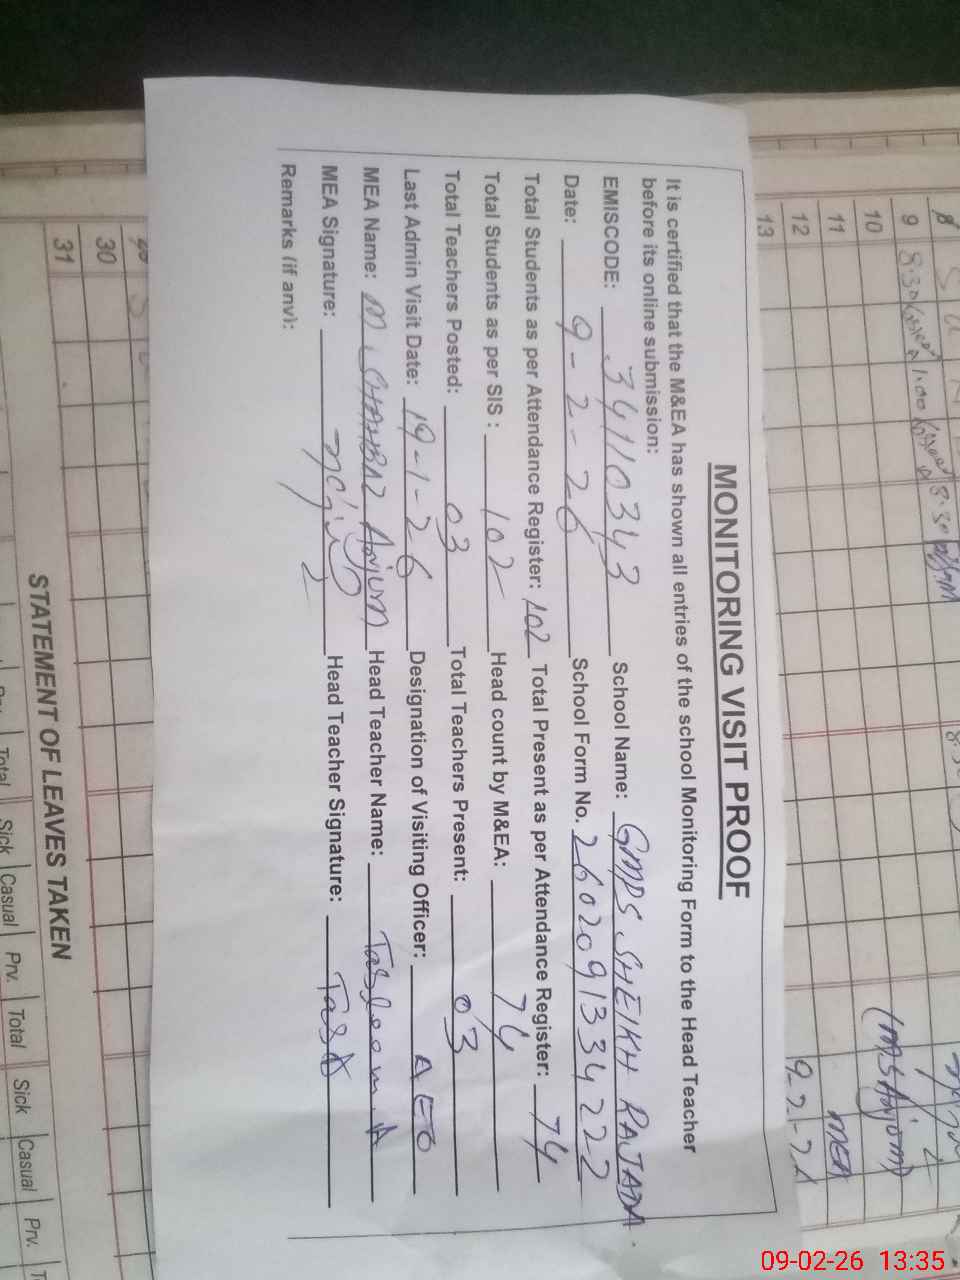 MONITORING VISIT PROOF
It is certified that the M&EA has shown all entries of the school Monitoring Form to the Head Teacher
before its online submission:
EMISCODE: 34110343 School Name: GMPS SHEIKH RAJADA.
Date: 9-2-26 School Form No. 2602091334222
Total Students as per Attendance Register: 102 Total Present as per Attendance Register: 74
Total Students as per SIS : 102 Head count by M&EA: 74
Total Teachers Posted: 03 Total Teachers Present: 03
Last Admin Visit Date: 19-1-26 Designation of Visiting Officer: AEO
MEA Name: M. SHAHBAZ Anjum Head Teacher Name: Tasleem.A
MEA Signature: Head Teacher Signature: TasA
Remarks (if any):
9
10
11 MEA
12
13
30
31
STATEMENT OF LEAVES TAKEN
Total Sick Casual Prv. Total Sick Casual Prv.
09-02-26 13:35